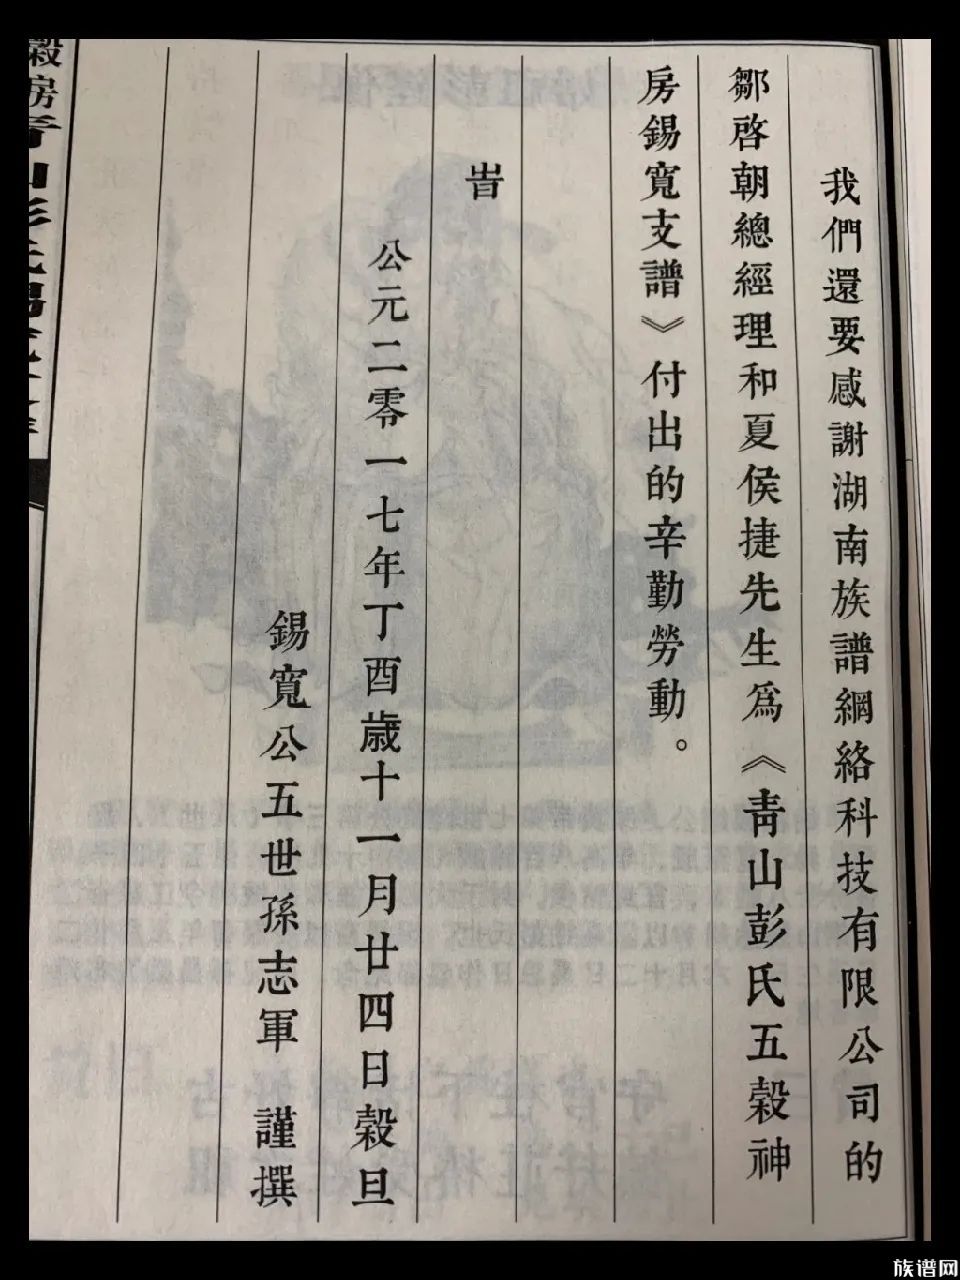 我們還要感謝湖南族譜網絡科技有限公司的
鄒啓朝總經理和夏侯捷先生為《青山彭氏五穀神
房錫寬支譜》付出的辛勤勞動。
旹
公元二零一七年丁酉歲十一月廿四日穀旦
錫寬公五世孫志軍 謹撰
族谱网